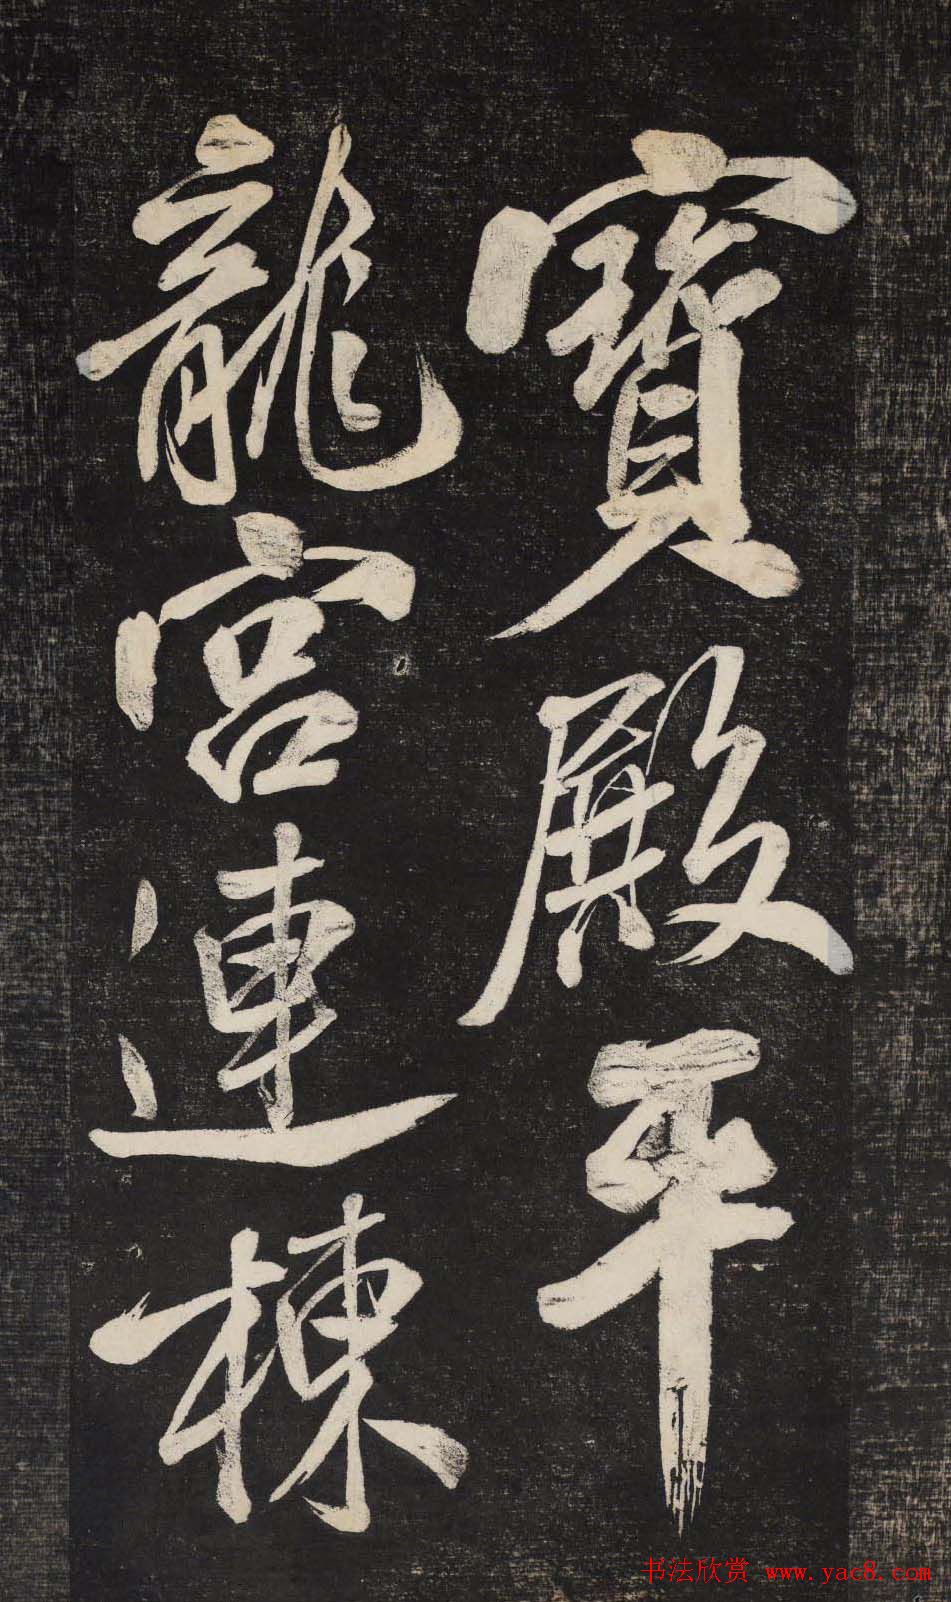 寶殿平
龍宮連棟
书法欣赏 www.yac8.com